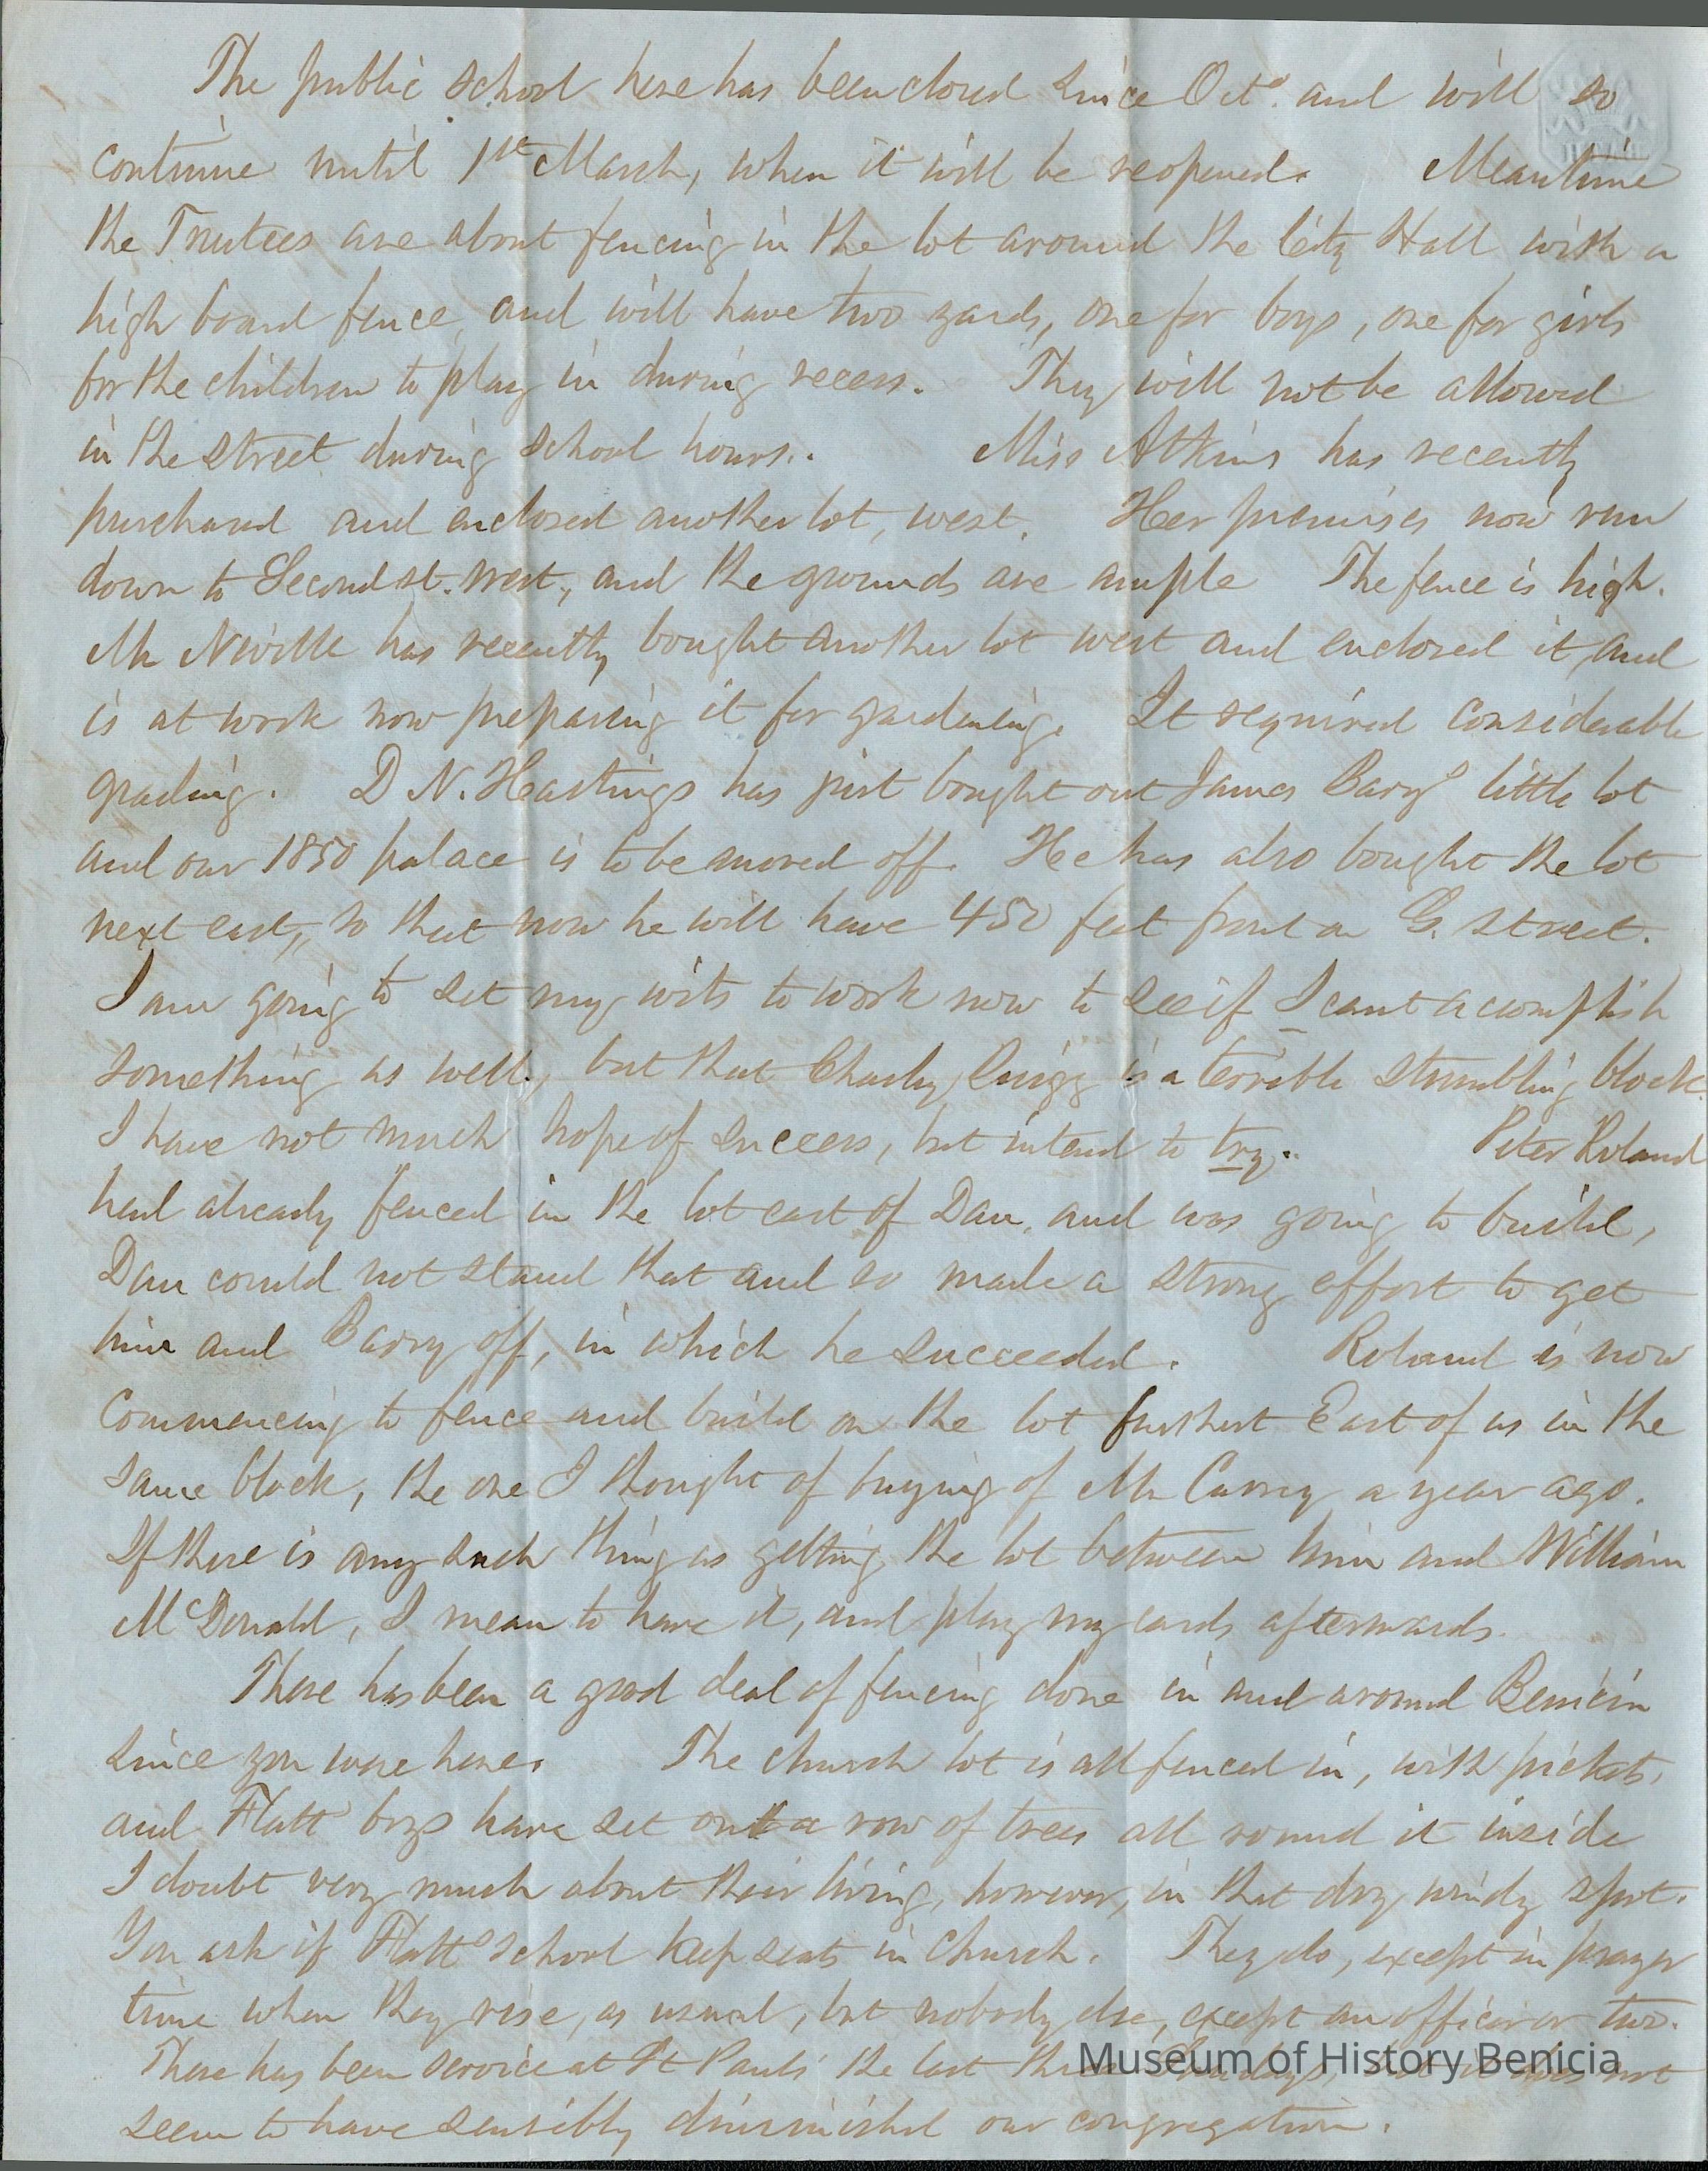 The public school here has been closed since Oct^o. and will so
continue until 1st March, when it will be reopened. Meantime
the Trustees are about fencing in the lot around the City Hall with a
high board fence, and will have two yards, one for boys, one for girls
for the children to play in during recess. They will not be allowed
in the street during school hours.. Miss Atkins has recently
purchased and enclosed another lot, west. Her premises now run
down to Second st. west, and the grounds are ample The fence is high.
Mr Neville has recently bought another lot west and enclosed it, and
is at work now preparing it for gardening. It required considerable
grading. D N. Hastings has just bought out James Barrys little lot
and our 1850 palace is to be moved off. He has also bought the lot
next east, so that now he will have 450 feet front on G. street.
I am going to set my wits to work now to see if I cant accomplish
something as well, but that Charley is a terrible stumbling block.
I have not much hope of success, but intend to try. Peter Roland
had already fenced in the lot east of Dan, and was going to build,
Dan could not stand that and so made a strong effort to get
him and Barry off, in which he succeeded. Roland is now
commencing to fence and build on the lot furthest East of us in the
same block, the one I thought of buying of Mr Carrey a year ago.
If there is any such thing as getting the lot between him and William
McDonald, I mean to have it, and play my cards afterwards.
There has been a good deal of fencing done in and around Benicia
since you were here. The church lot is all fenced in, with pickets,
and Flatt boys have set out a row of trees all round it inside
I doubt very much about their living, however, in that dry windy spot.
You ask if Flatts school keep seats in church. They do, except in prayer
time when they rise, as usual, but nobody else, except an officer or two.
There has been service at St Pauls the last three Sundays, but it does not
seem to have sensibly diminished our congregation.
Museum of History Benicia